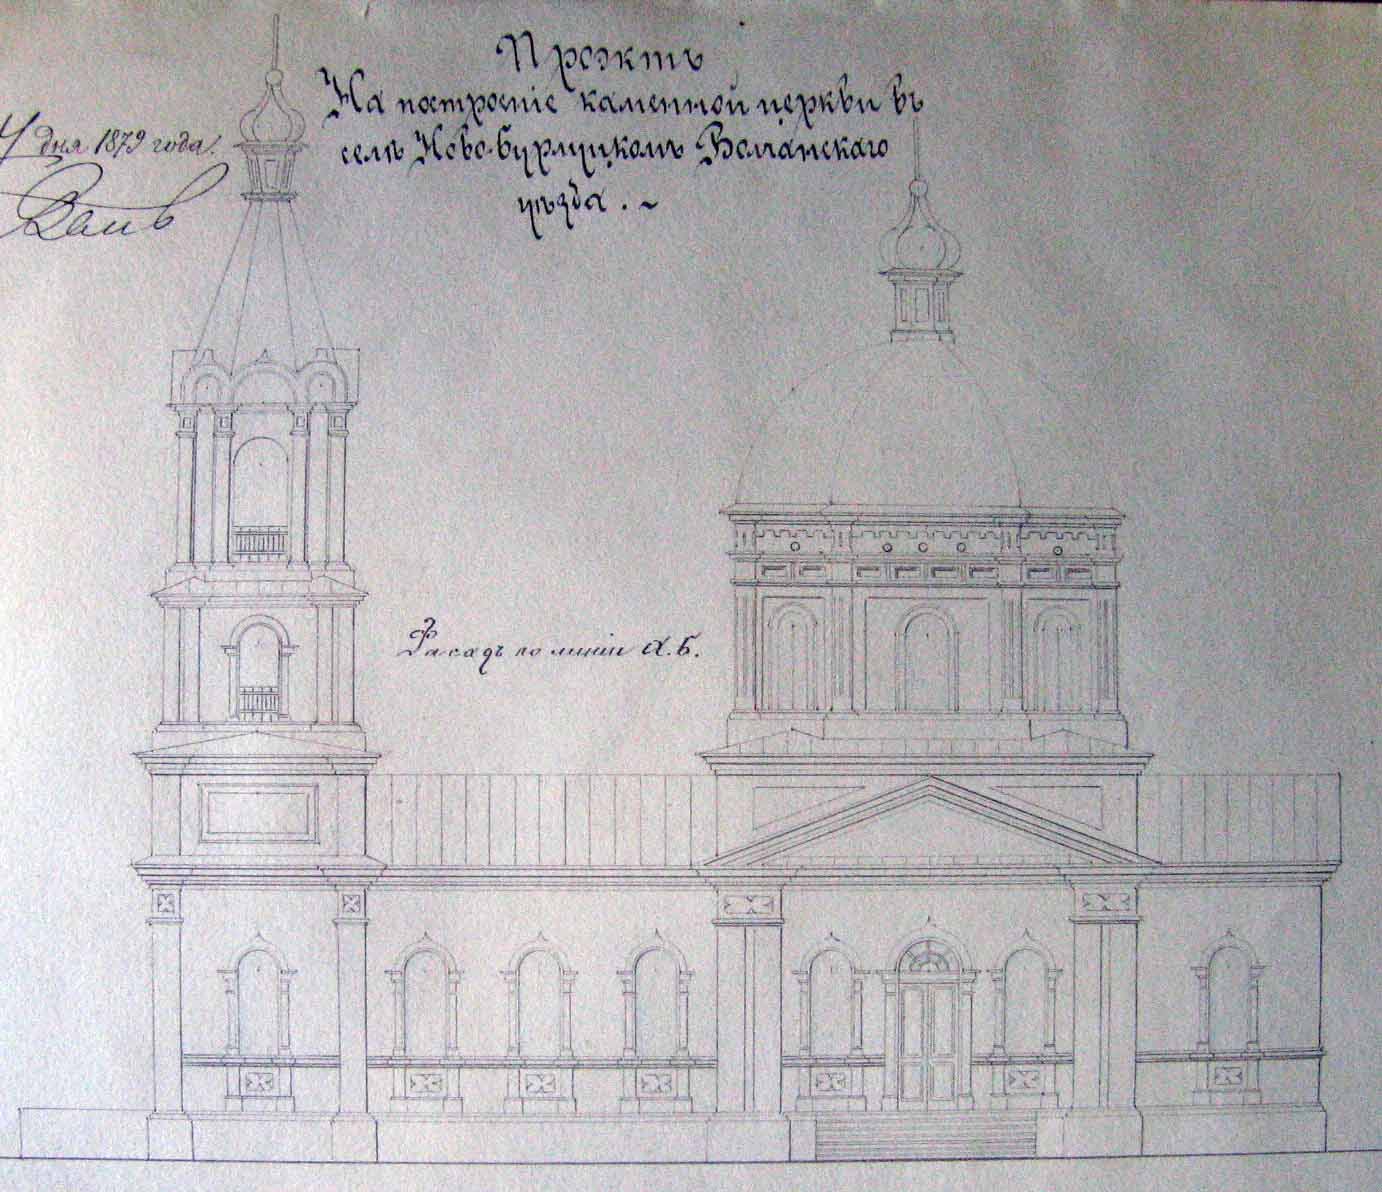 Проэктъ
На построеніе каменной церкви въ
селѣ Ново-бурлуцкомъ Волчанскаго
уѣзда.
дня 1879 года.
Фасадъ по линіи А.Б.